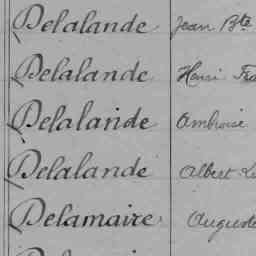 Delalande Jean Bte
Delalande Henri
Delalande Ambroise
Delalande Albert
Delamaire Auguste